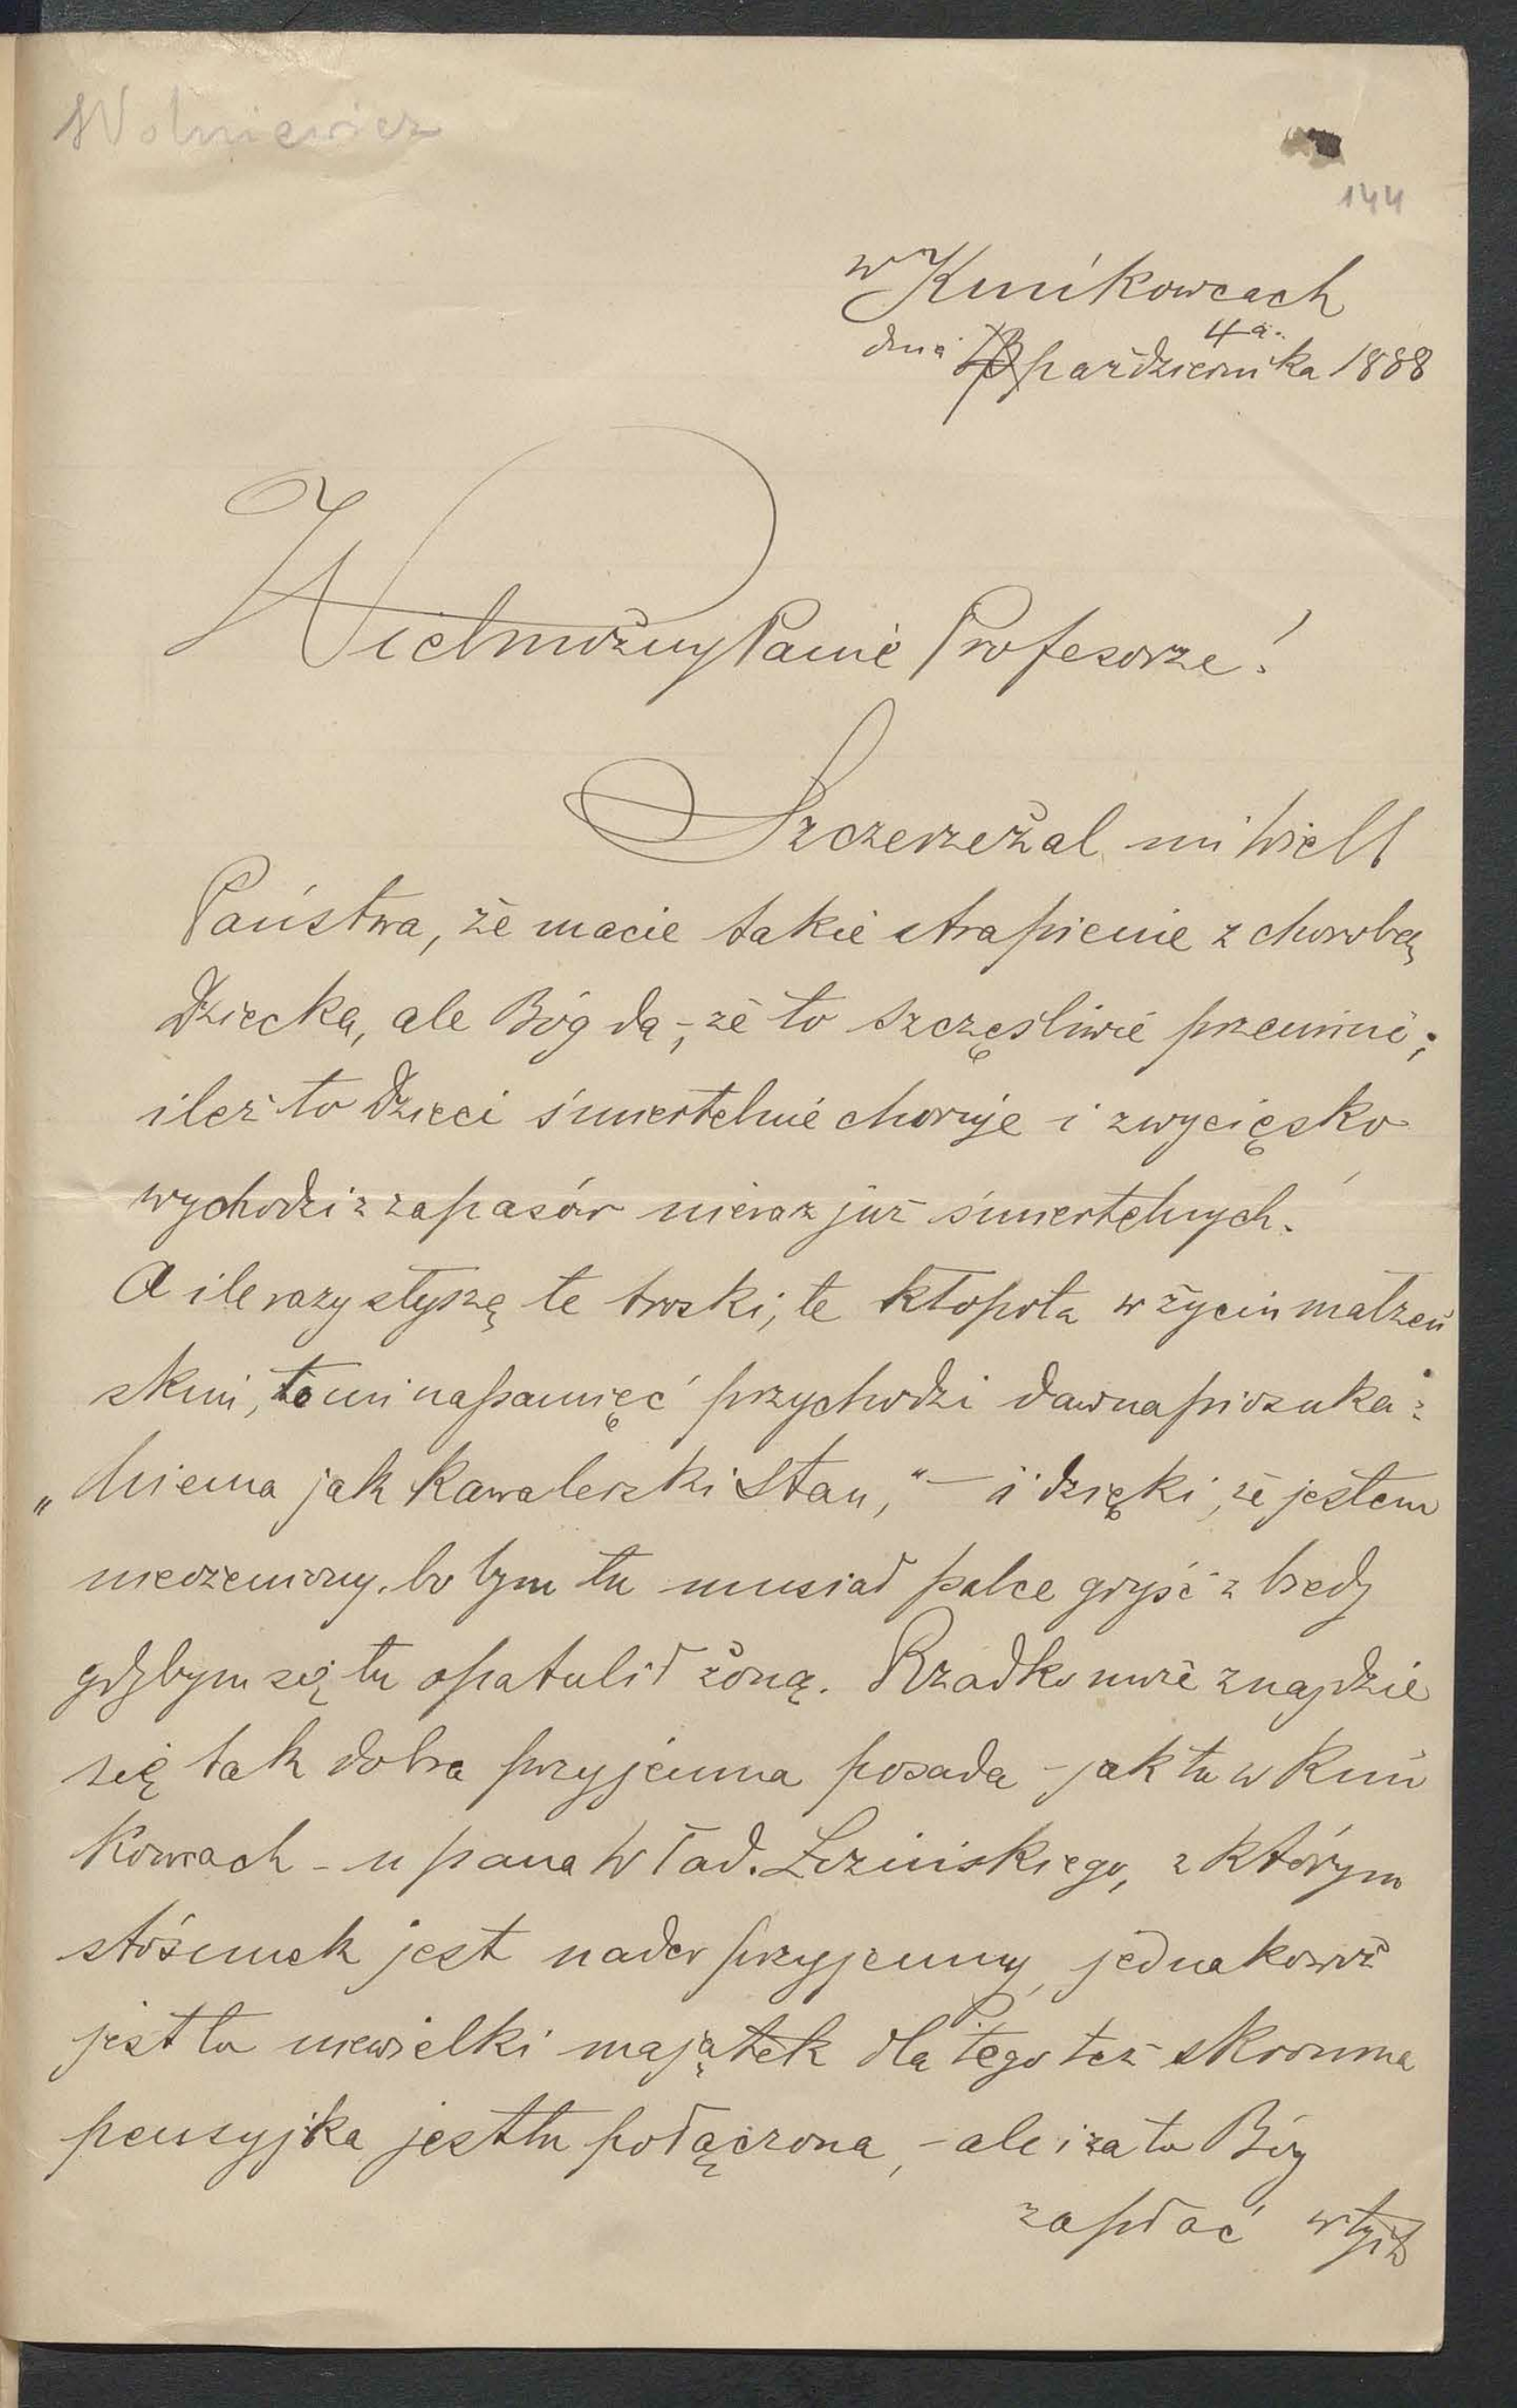 Wolniewicz
144
w Kunikowcach
dnia 4a. października 1888
Wielmożny Panie Profesorze!
Szczerze żal mi Wiell
Państwa, że macie takie strapienie z chorobą
Dziecka, ale Bóg da, – że to szczęśliwie przeminie;
ileż to Dzieci śmiertelnie choruje i zwycięsko
wychodzi z zapasów nieraz już śmiertelnych.
A ile razy słyszę te troski, te kłopota w życiu małżeń
skim, to mi na pamięć przychodzi dawna piosnka:
„Niema jak kawalerski stan,“ – i dzięki, że jestem
nieożeniony, bo bym tu musiał palce gryść z biedy
gdybym się tu opatulił żoną. Rzadko może znajdzie
się tak dobra przyjemna posada – jak tu w Kuni
kowcach – u pana Wład. Łozińskiego, z którym
stósunek jest nader przyjemny, jednakowoż
jest to niewielki majątek dla tego też skromna
pensyjka jest tu połączona, – ale i za to Bóg
zapłać